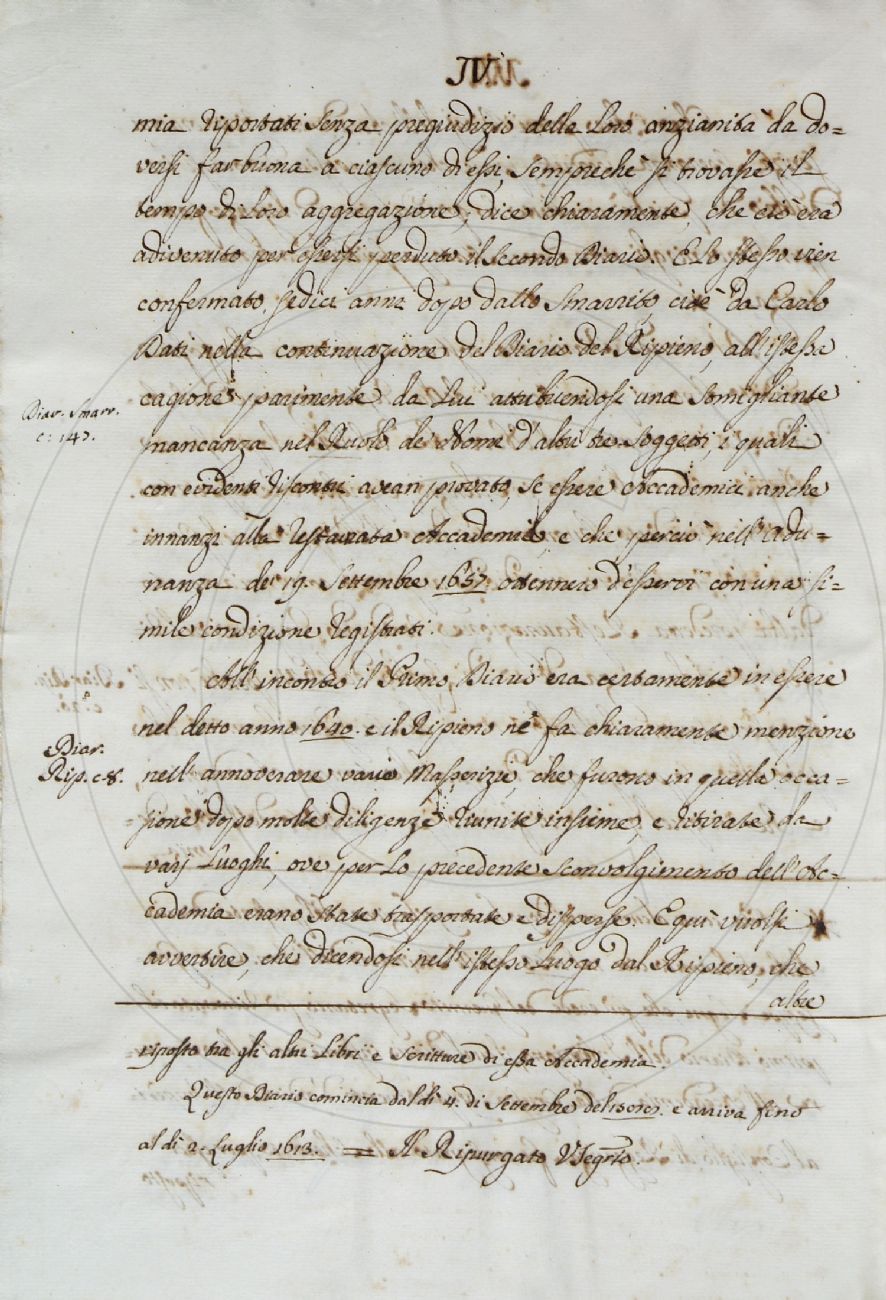 IV.
mia riportati senza pregiudizio della loro anzianità da do=
versi far buona a ciascuno di essi, sempreché si trovasse il
tempo di loro aggregazione, dice chiaramente, che ciò era
adivenuto per essersi perduto il secondo Diario. E lo stesso vien
confermato sedici anni dopo dallo Smarrito, cioè da Carlo
Dati nella continuazione del Diario del Ripieno, all'istessa
cagione parimente da lui attribuendosi una somigliante
Diar. Smarr.
c: 147.
mancanza nel Ruolo de' Nomi d'altri tre soggetti, i quali
con evidenti riscontri avean provato, se essere Accademici anche
innanzi alla restaurata Accademia, e che perciò nell'Adu=
nanza de' 19. Settembre 1657. ottennero d'esservi con una si=
mile condizione registrati.
All'incontro il Primo Diario era certamente in essere
nel detto anno 1640. e il Ripieno ne fa chiaramente menzione
Diar.
Rip. c. 8.
nell'annoverare varie Masserizie, che furono in quella occa=
sione dopo molte diligenze riunite insieme, e ritirate da
varj Luoghi, ove per lo precedente sconvolgimento dell'Ac=
cademia erano state trasportate e disperse. E quì vuolsi
avvertire, che dicendosi nell'istesso Luogo dal Ripieno, che
altre
riposto tra gli altri Libri e Scritture di essa Accademia.
Questo Diario comincia dal dì 4. di Settembre del e arriva fino
al dì 2. Luglio 1613. = Il Ripurgato V. Segrio.